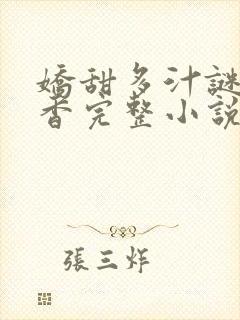 嬌甜多汁謎
香完整小說
張三炸